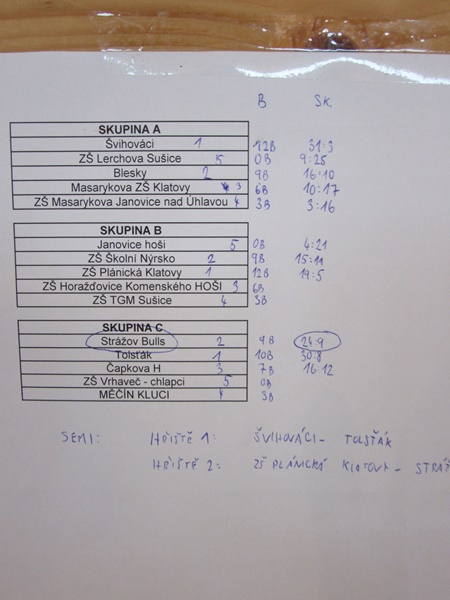 B SK.
SKUPINA A
Švihováci 1 12B 31:3
ZŠ Lerchova Sušice 5 0B 9:25
Blesky 2 9B 16:10
Masarykova ZŠ Klatovy 3 6B 10:17
ZŠ Masarykova Janovice nad Úhlavou 4 3B 3:16
SKUPINA B
Janovice hoši 5 0B 4:21
ZŠ Školní Nýrsko 2 9B 15:11
ZŠ Plánická Klatovy 1 12B 19:5
ZŠ Horažďovice Komenského HOŠI 3 6B
ZŠ TGM Sušice 4 3B
SKUPINA C
Strážov Bulls 2 9B 24:9
Tolsťák 1 10B 30:8
Čapkova H 3 7B 16:12
ZŠ Vrhaveč - chlapci 5 0B
MĚČÍN KLUCI 4 3B
SEMI: HŘIŠTĚ 1: ŠVIHOVÁCI - TOLSŤÁK
HŘIŠTĚ 2: ZŠ PLÁNICKÁ KLATOVY - STRÁŽ